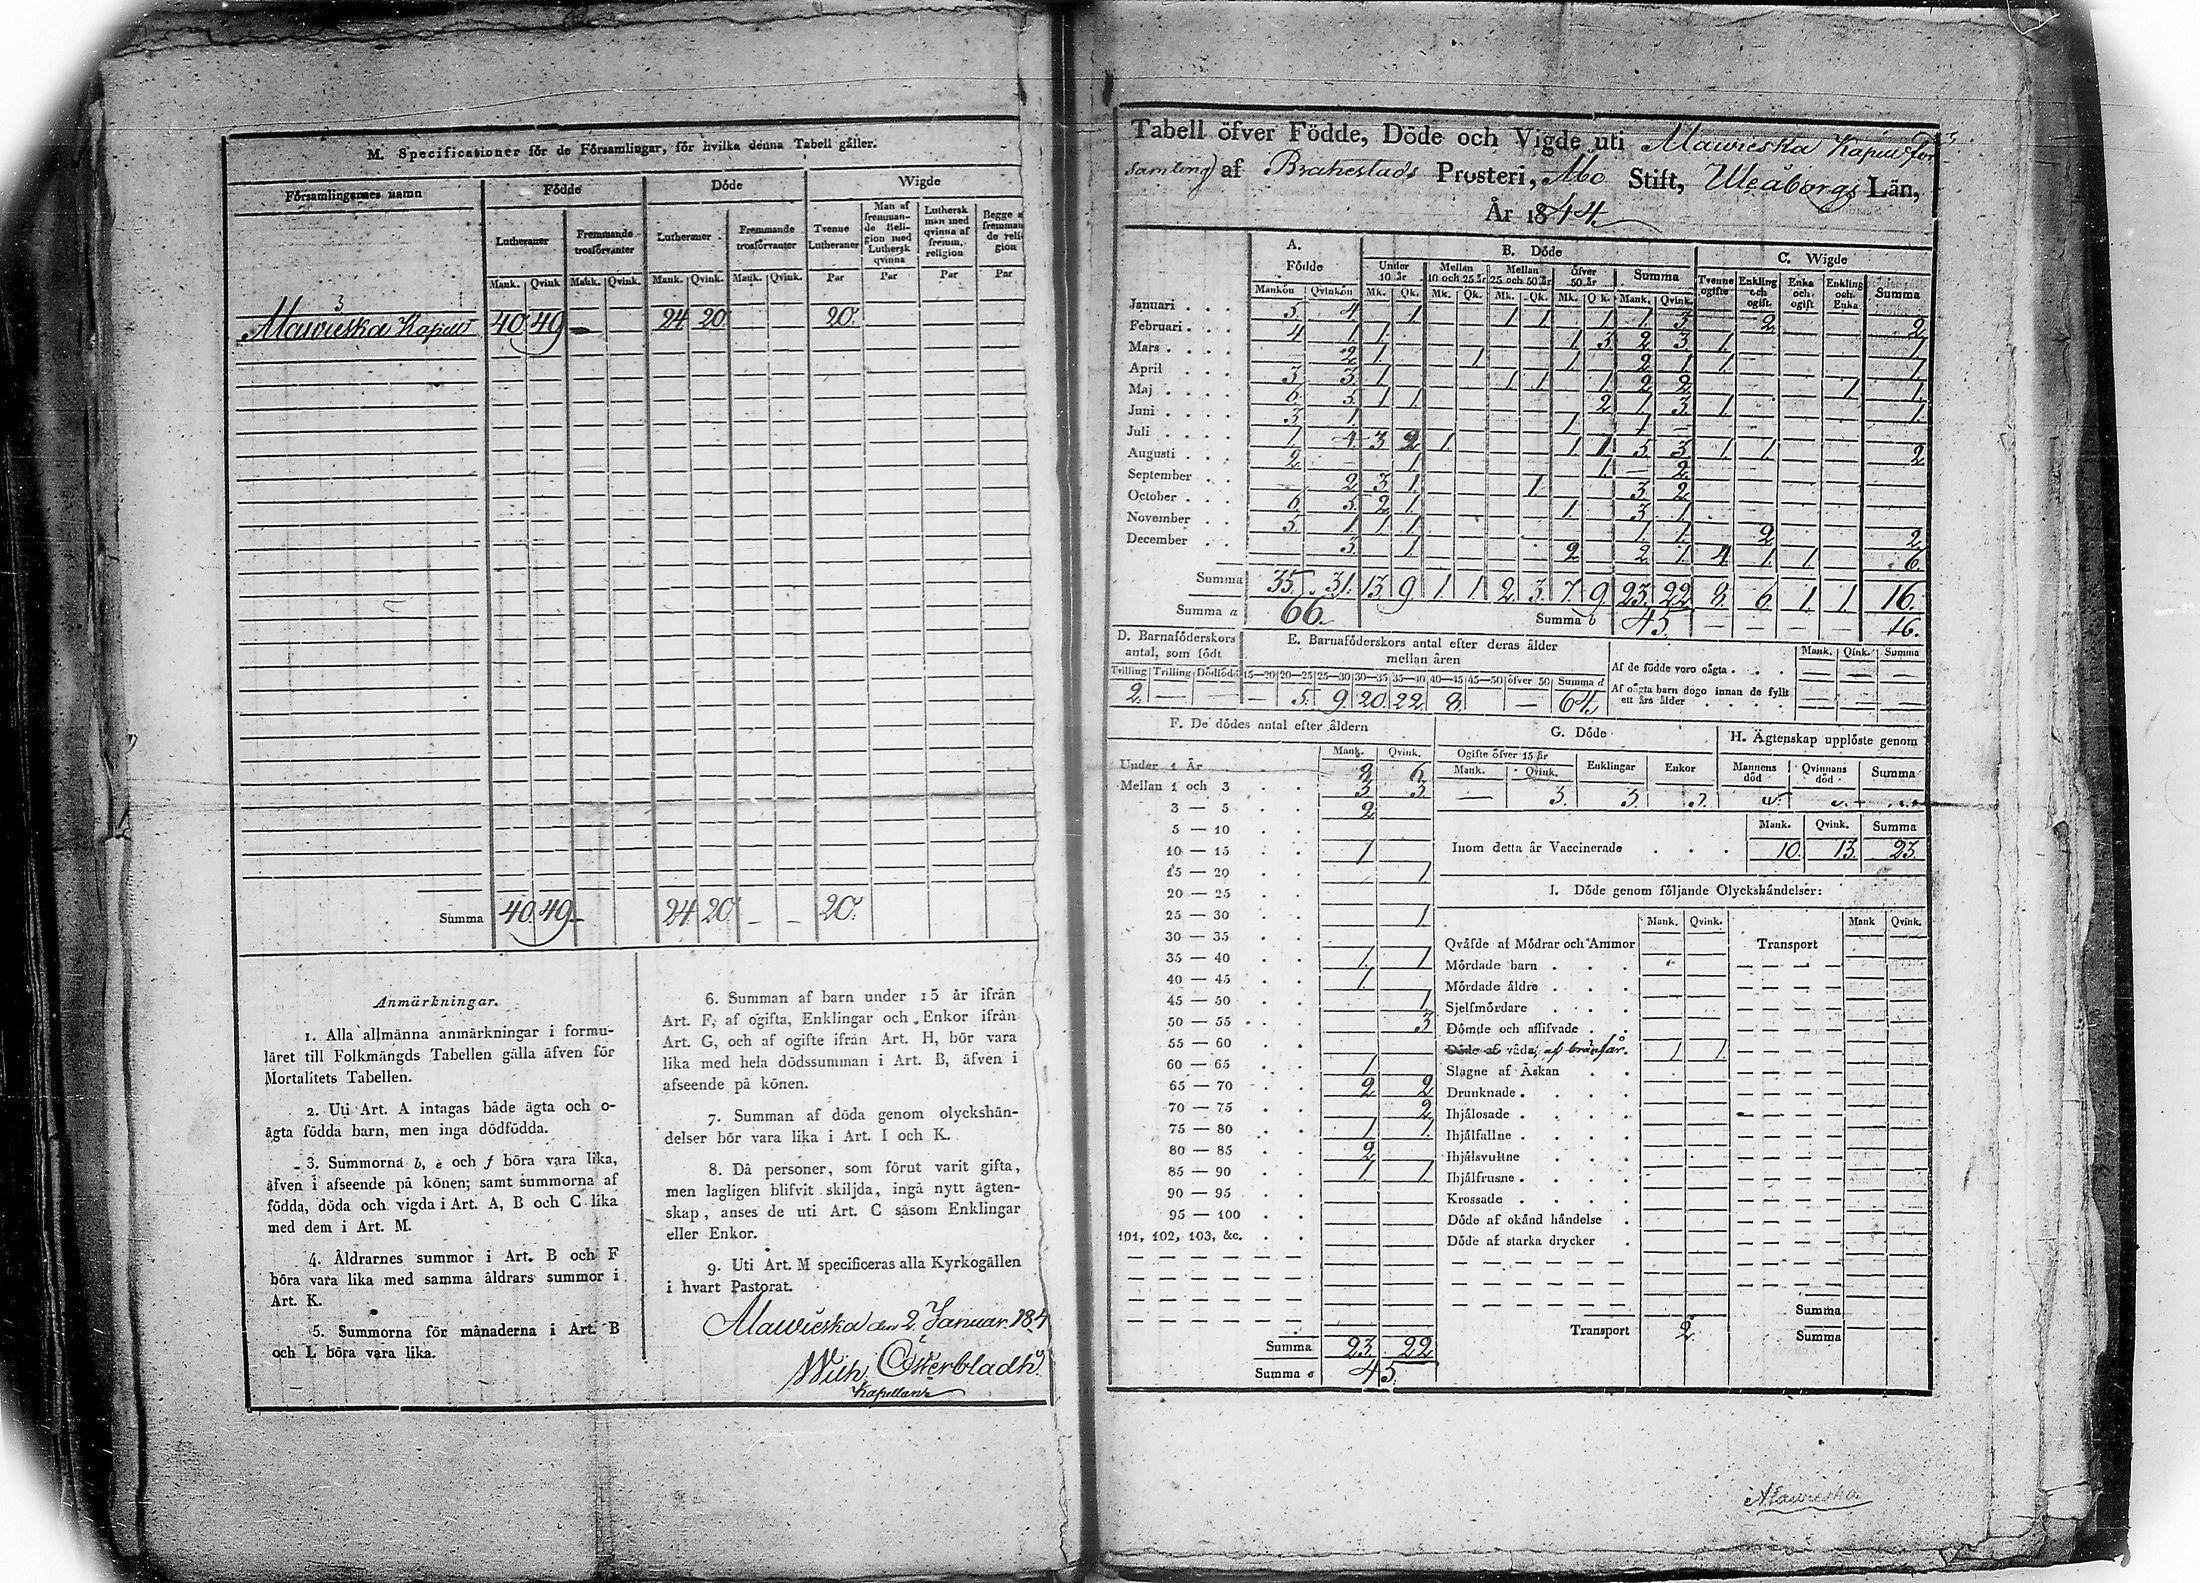 M. Specificationer för de Församlingar, för hvilka denna Tabell gäller.
Församlingarnes namn Födde Döde Wigde
Lutheraner Fremmande trosförvanter Lutheraner Fremmande trosförvanter Tvenne Lutheraner Man af fremmande Religion med Luthersk qvinna Luthersk man med qvinna af fremm. religion Begge af fremmande religion
Mank. Qvink Mank. Qvink. Mank. Qvink. Mank. Qvink. Par Par Par Par
3
Mawieska Kapell 40 49 – 24 20 20.
Summa 40. 49 – 24 20 – – 20.
Anmärkningar.
1. Alla allmänna anmärkningar i formu-
läret till Folkmängds Tabellen gälla äfven för
Mortalitets Tabellen.
2. Uti Art. A intagas både ägta och o-
ägta födda barn, men inga dödfödda.
3. Summorna b, e och f böra vara lika,
äfven i afseende på könen; samt summorna af
födda, döda och vigda i Art. A, B och C lika
med dem i Art. M.
4. Åldrarnes summor i Art. B och F
böra vara lika med samma åldrars summor i
Art. K.
5. Summorna för månaderna i Art. B
och L böra vara lika.
6. Summan af barn under 15 år ifrån
Art. F, af ogifta, Enklingar och Enkor ifrån
Art. G, och af ogifte ifrån Art. H, bör vara
lika med hela dödssumman i Art. B, äfven i
afseende på könen.
7. Summan af döda genom olyckshän-
delser bör vara lika i Art. I och K.
8. Då personer, som förut varit gifta,
men lagligen blifvit skiljda, ingå nytt ägten-
skap, anses de uti Art. C såsom Enklingar
eller Enkor.
9. Uti Art. M specificeras alla Kyrkogällen
i hvart Pastorat.
Mawieska den 2 Januar. 184
Wilh. Österbladh
Kapellan
Tabell öfver Födde, Döde och Vigde uti Mawieska Kapell för
samling af Brahestads Prosteri, Åbo Stift, Uleåborgs Län,
År 1844.
A. Födde B. Döde C. Wigde
Under 10 år Mellan 10 och 25 år Mellan 25 och 50 år Öfver 50 år Summa Tvenne ogifte Enkling och ogift. Enka och ogift Enkling och Enka Summa
Mankön Qvinkön Mk. Qk. Mk. Qk. Mk. Qk. Mk. Qk. Mank. Qvink.
Januari 5. 4. 1 1 1 1 1. 3 2 2
Februari 4 1 1 1 3 2 3 1. 1
Mars 2 1 1 1 2 1 1 1.
April 3 3 1 1 1 1 2 2 1 1.
Maj 6. 5. 1 1. 2 1. 3 1. 1.
Juni 3 1 1 1 –
Juli 1 4 3 2 1. 1 1. 5 3 1. 1 2
Augusti 2 1 1 – 2
September 2 3 1 1 3 2
October 6. 5. 2 1 1. 3 1
November 5. 1 1. 1 1. 1. 2 2
December 3. 1 2 2 1. 4. 1. 1 6.
Summa 35. 31. 13 9 1. 1 2. 3. 7. 9. 23. 22 8. 6 1. 1 16.
Summa a 66. Summa b 45. – – – – 16.
D. Barnaföderskors antal, som födt
E. Barnaföderskors antal efter deras ålder mellan åren
Mank. Qink. Summa
Tvilling Trilling Dödfödd 15—20 20—25 25—30 30—35 35—40 40—45 45—50 öfver 50 Summa d
2. – – 5. 9. 20. 22 8. – 64.
Af de födde voro oägta – – –
Af oägta barn dogo innan de fyllt
ett års ålder – – –
F. De dödes antal efter åldern
Mank. Qvink.
Under 1 År 8 6
Mellan 1 och 3 3 3.
3 — 5 2
5 — 10
10 — 15 1
15 — 20 1.
20 — 25
25 — 30 1.
30 — 35
35 — 40 1. 1
40 — 45 1.
45 — 50 1
50 — 55 3
55 — 60
60 — 65 1
65 — 70 2 2
70 — 75 2
75 — 80 1 1.
80 — 85 2
85 — 90 1 1
90 — 95
95 — 100
101, 102, 103, &c.
Summa 23. 22
Summa e 45.
G. Döde
Ogifte öfver 15 år Enklingar Enkor
Mank. Qvink.
– 3. 3.
H. Ägtenskap upplöste genom
Mannens död Qvinnans död Summa
Mank. Qvink. Summa
Inom detta år Vaccinerade 10. 13. 23.
I. Döde genom följande Olyckshändelser:
Mank. Qvink. Mank Qvink.
Qväfde af Mödrar och Ammor Transport
Mördade barn
Mördade äldre
Sjelfmördare
Dömde och affifvade
Döde af våda, af brånsår. 1 1
Slagne af Åskan
Drunknade
Ihjälosade
Ihjälfallne
Ihjälsvultne
Ihjälfrusne
Krossade
Döde af okänd händelse
Döde af starka drycker
Summa
Transport 2 Summa
Mawieska